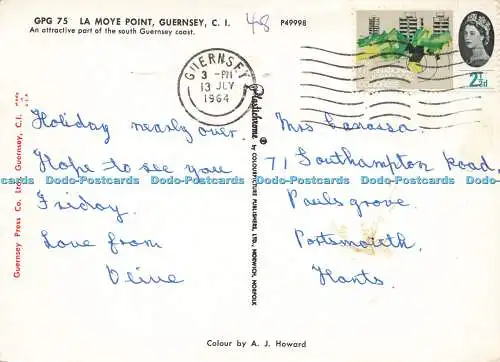 GPG 75 LA MOYE POINT, GUERNSEY, C. I.
An attractive part of the south Guernsey coast.
48
P49998
GUERNSEY
3 - PM
13 JLY
1964
2½d
Holiday nearly over.
Hope to see you
Friday.
Love from
Olive
Mrs Canassa.
71 Southampton Road,
Paulsgrove.
Portsmouth.
Hants.
Guernsey Press Co. Ltd., Guernsey, C.I.
Plastichrome ® by COLOURPICTURE PUBLISHERS, LTD., NORWICH, NORFOLK
Dodo-Postcards Dodo-Postcards Dodo-Postcards Dodo-Postcards Dodo-Postcards
Colour by A. J. Howard